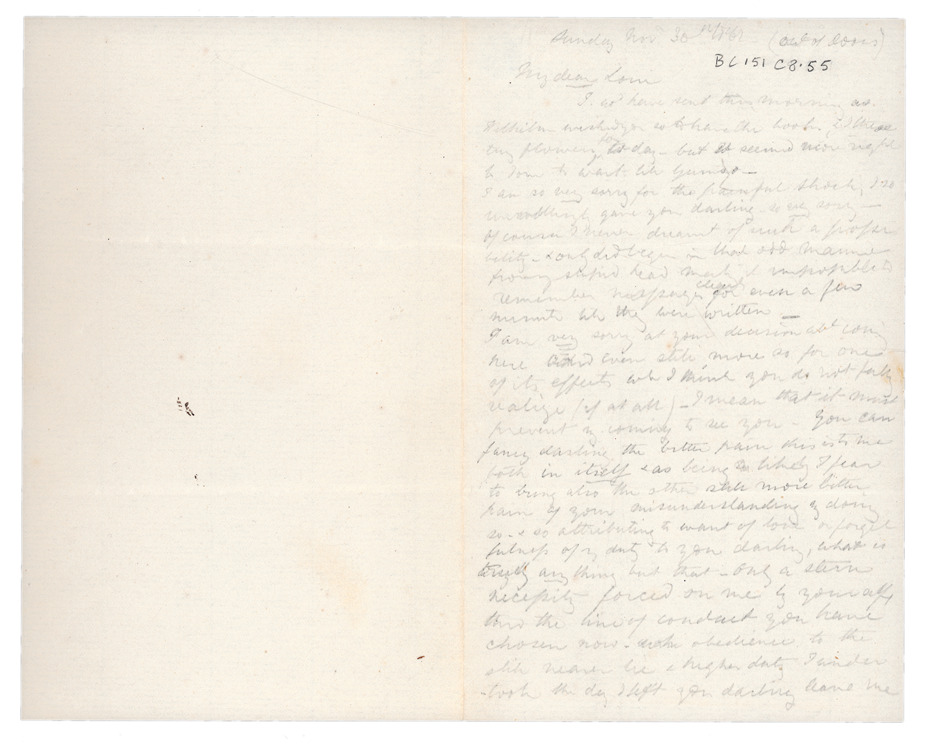 Sunday Nov. 30th (out of doors)
BC 151 C8.55
My dear Love
I wd have sent this morning as
wished you to have the book, & these
my flowers to day - but it seemed more right
to wait till
I am so very sorry for the painful shock I so
unwittingly gave you darling - so very sorry -
of course I never dreamt of such a possi
bility - & only did begin in that odd manner
from my stupid head making it impossible to
remember messages clearly for even a few
minutes till they were written -
I am very sorry at your decision abt coming
here and even still more so for one
of its effects wh I think you do not fully
realize (if at all) - I mean that it must
prevent my coming to see you - You can
fancy darling the bitter pain this is to me
both in itself & as being so likely I fear
to bring also the other still more bitter
pain of your misunderstanding my doing
so - & so attributing to want of love or forget
fulness of my duty to you darling, what is
truly anything but that - only a stern
necessity forced on me by yourself
thro the line of conduct you have
chosen now - obedience to the
still nearer tie & higher duty I under
took the day I left you darling leave me